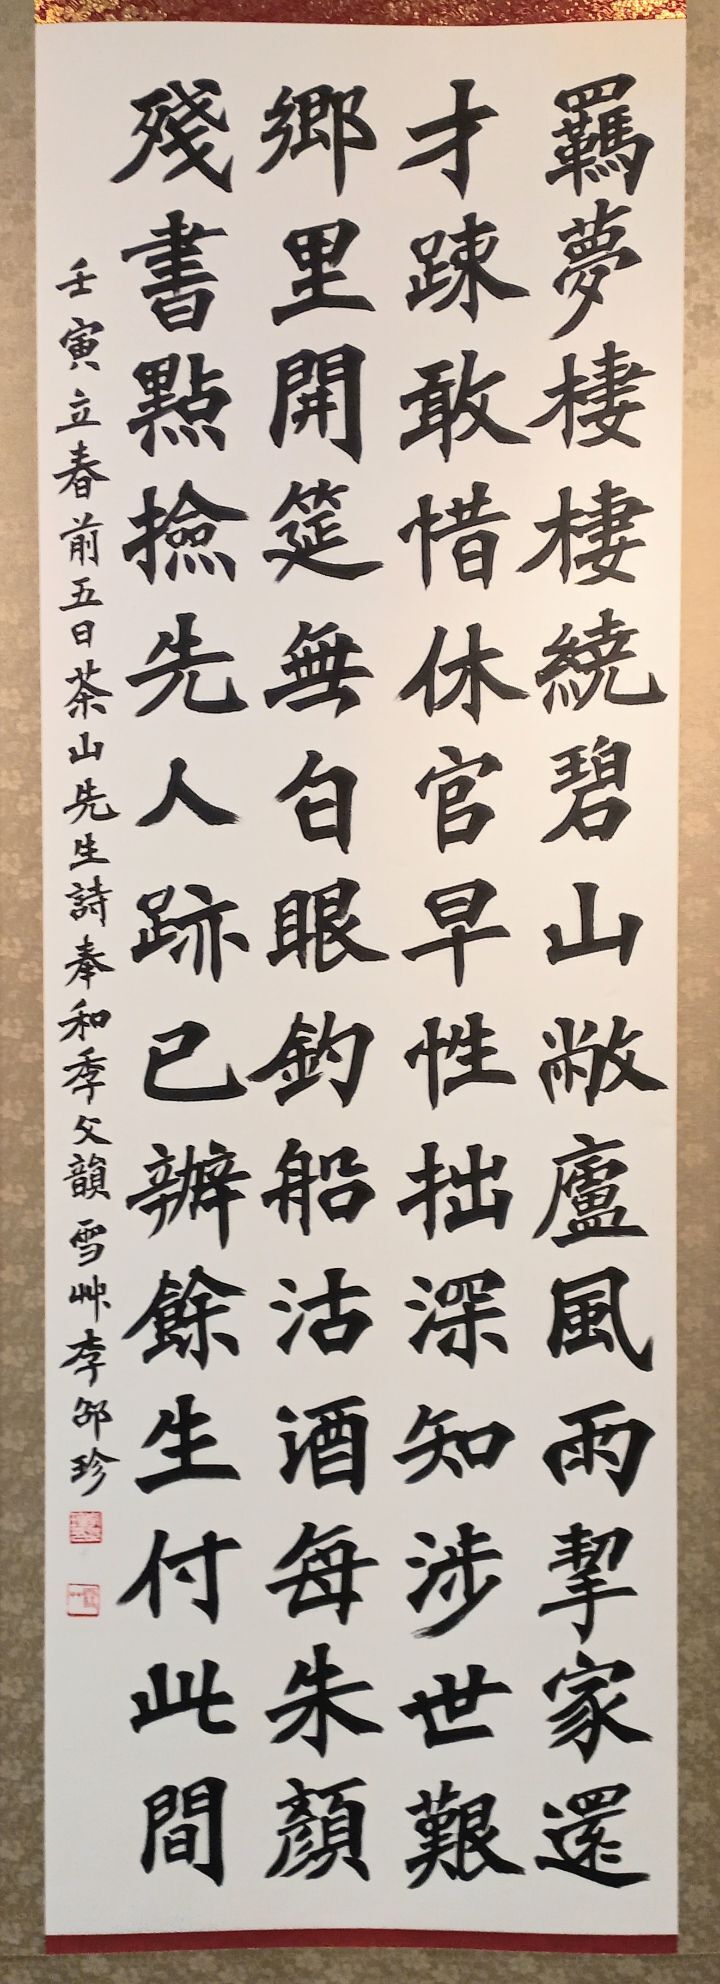 羈夢棲棲繞碧山敝廬風雨挈家還
才踈敢惜休官早性拙深知涉世艱
鄉里開筵無白眼釣船沽酒每朱顏
殘書點撿先人跡已辦餘生付此間
壬寅立春前五日茶山先生詩奉和季父韻雪艸李邵珍